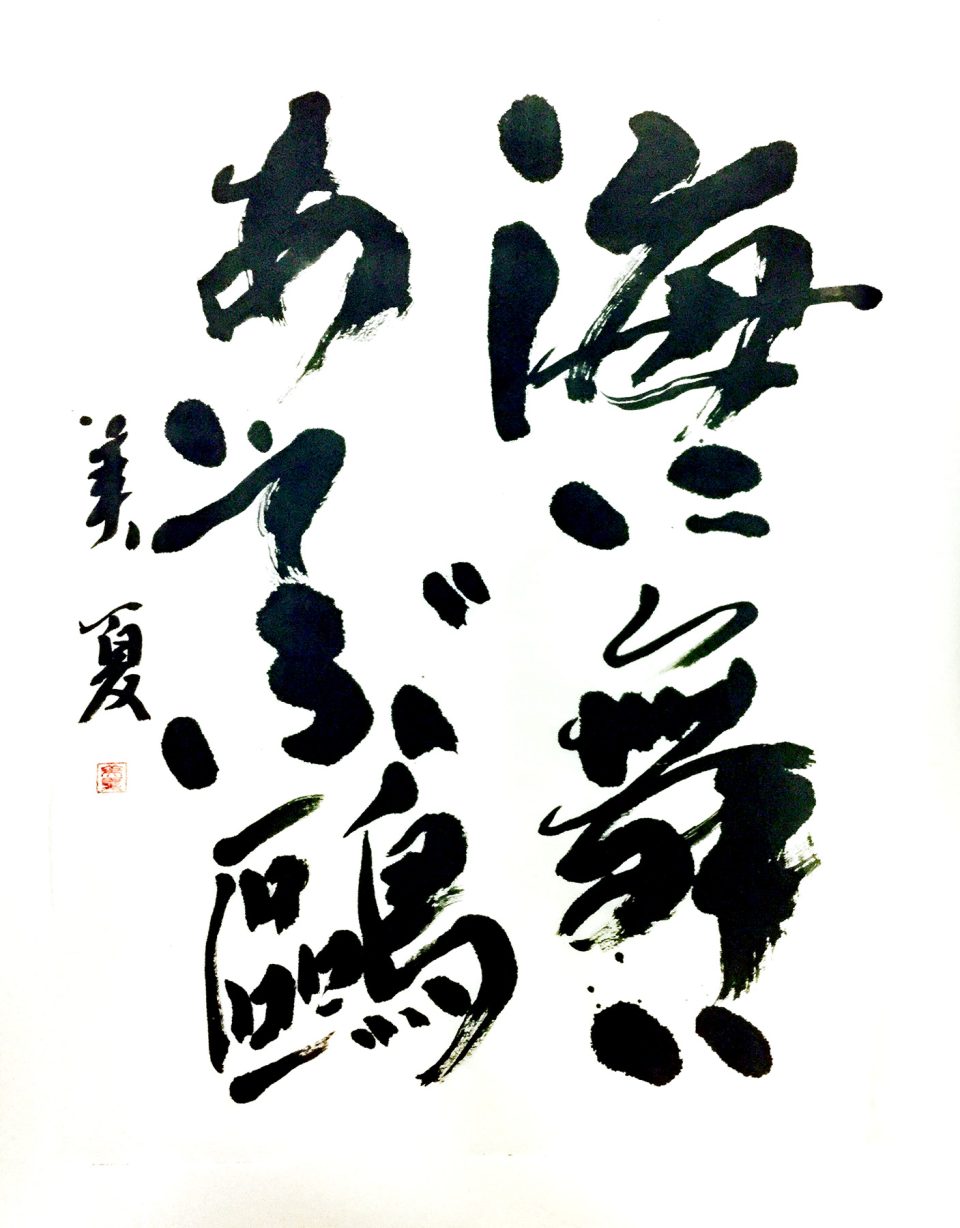 海に舞い
あそぶ鷗
美夏